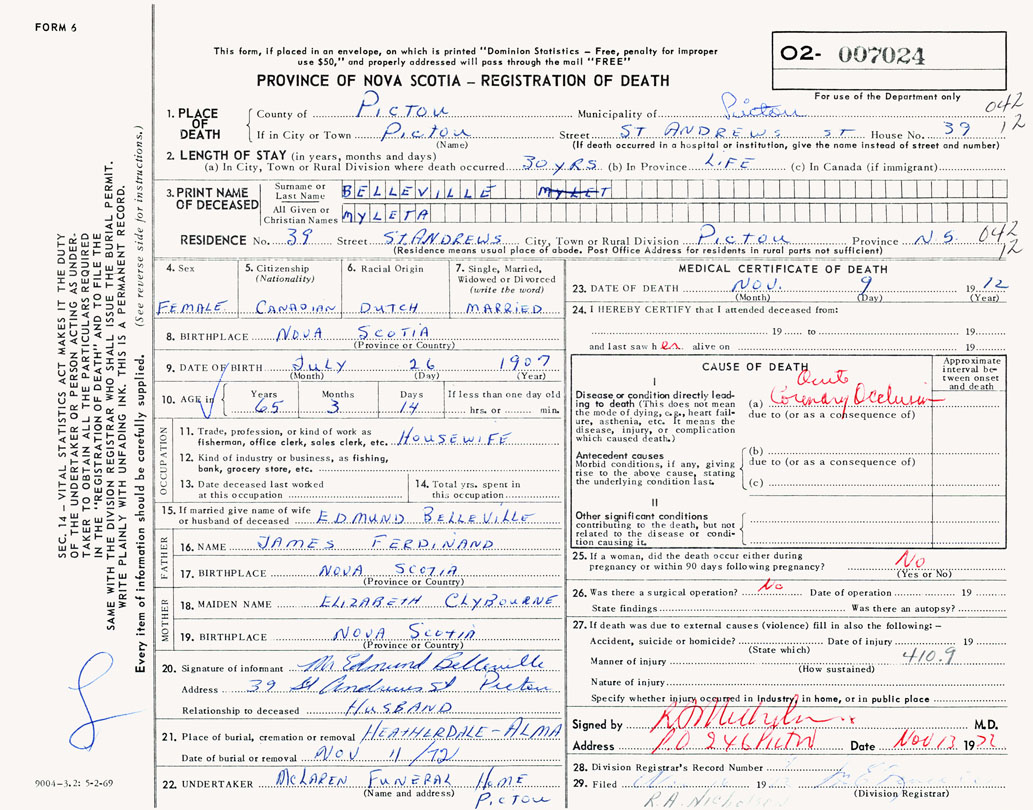 FORM 6
This form, if placed in an envelope, on which is printed "Dominion Statistics – Free, penalty for improper
use $50," and properly addressed will pass through the mail "FREE"
PROVINCE OF NOVA SCOTIA – REGISTRATION OF DEATH
O2- 007024
For use of the Department only
042
12
1. PLACE OF DEATH
County of PICTOU Municipality of Pictou
If in City or Town PICTOU Street ST ANDREWS ST House No. 39
(Name) (If death occurred in a hospital or institution, give the name instead of street and number)
2. LENGTH OF STAY (in years, months and days)
(a) In City, Town or Rural Division where death occurred 30 YRS (b) In Province LIFE (c) In Canada (if immigrant)
3. PRINT NAME OF DECEASED
Surname or Last Name BELLEVILLE MYLET
All Given or Christian Names MYLETA
RESIDENCE No. 39 Street ST. ANDREWS City, Town or Rural Division PICTOU Province N.S.
042
12
(Residence means usual place of abode. Post Office Address for residents in rural parts not sufficient)
4. Sex FEMALE
5. Citizenship (Nationality) CANADIAN
6. Racial Origin DUTCH
7. Single, Married, Widowed or Divorced (write the word) MARRIED
8. BIRTHPLACE NOVA SCOTIA
(Province or Country)
9. DATE OF BIRTH JULY 26 1907
(Month) (Day) (Year)
10. AGE in Years Months Days If less than one day old
65 3 14 hrs. or min.
OCCUPATION
11. Trade, profession, or kind of work as
fisherman, office clerk, sales clerk, etc. HOUSEWIFE
12. Kind of industry or business, as fishing,
bank, grocery store, etc.
13. Date deceased last worked
at this occupation
14. Total yrs. spent in
this occupation
15. If married give name of wife
or husband of deceased EDMUND BELLEVILLE
FATHER
16. NAME JAMES FERDINAND
17. BIRTHPLACE NOVA SCOTIA
(Province or Country)
MOTHER
18. MAIDEN NAME ELIZABETH CLYBOURNE
19. BIRTHPLACE NOVA SCOTIA
(Province or Country)
20. Signature of informant Mr Edmund Belleville
Address 39 St Andrews St Pictou
Relationship to deceased HUSBAND
21. Place of burial, cremation or removal HEATHERDALE-ALMA
Date of burial or removal NOV 11/72
22. UNDERTAKER MCLAREN FUNERAL HOME
(Name and address) PICTOU
MEDICAL CERTIFICATE OF DEATH
23. DATE OF DEATH NOV. 9 1972
(Month) (Day) (Year)
24. I HEREBY CERTIFY that I attended deceased from:
19 to 19
and last saw her alive on 19
CAUSE OF DEATH
Approximate interval between onset and death
I
Disease or condition directly leading
to death (This does not mean
the mode of dying, e.g., heart failure,
asthenia, etc. It means the
disease, injury, or complication
which caused death.)
(a) Acute Coronary Occlusion
due to (or as a consequence of)
Antecedent causes
Morbid conditions, if any, giving
rise to the above cause, stating
the underlying condition last.
(b)
due to (or as a consequence of)
(c)
II
Other significant conditions
contributing to the death, but not
related to the disease or condition
causing it.
25. If a woman, did the death occur either during
pregnancy or within 90 days following pregnancy? No
(Yes or No)
26. Was there a surgical operation? No Date of operation 19
State findings Was there an autopsy?
27. If death was due to external causes (violence) fill in also the following: –
Accident, suicide or homicide? Date of injury 19
(State which)
410.9
Manner of injury
(How sustained)
Nature of injury
Specify whether injury occurred in Industry, in home, or in public place
Signed by M.D.
Address PO 246 Pictou Date Nov 13 1972
28. Division Registrar's Record Number
29. Filed 19
(Division Registrar)
R.A. Nicholson
SEC. 14 – VITAL STATISTICS ACT MAKES IT THE DUTY
OF THE UNDERTAKER OR PERSON ACTING AS UNDERTAKER
TO OBTAIN ALL THE PARTICULARS REQUIRED
IN THE "REGISTRATION OF DEATH" AND TO FILE THE
SAME WITH THE DIVISION REGISTRAR WHO SHALL ISSUE THE BURIAL PERMIT.
WRITE PLAINLY WITH UNFADING INK. THIS IS A PERMANENT RECORD.
Every item of information should be carefully supplied. (See reverse side for instructions.)
9004-3.2: 5-2-69